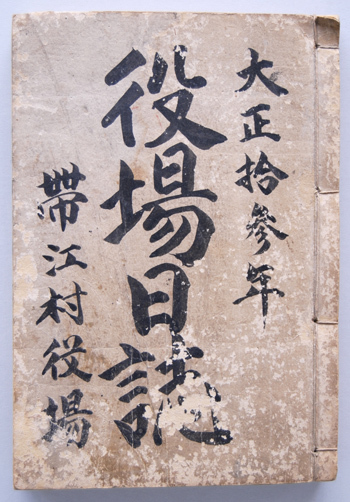 大正拾參年
役場日誌
帶江村役場